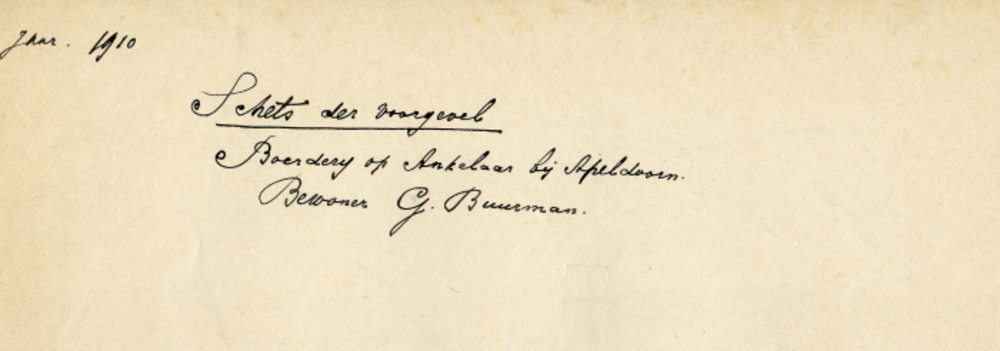 Jaar. 1910
Schets der voorgevel
Boerdery op Ankelaar bij Apeldoorn.
Bewoner G. Buurman.